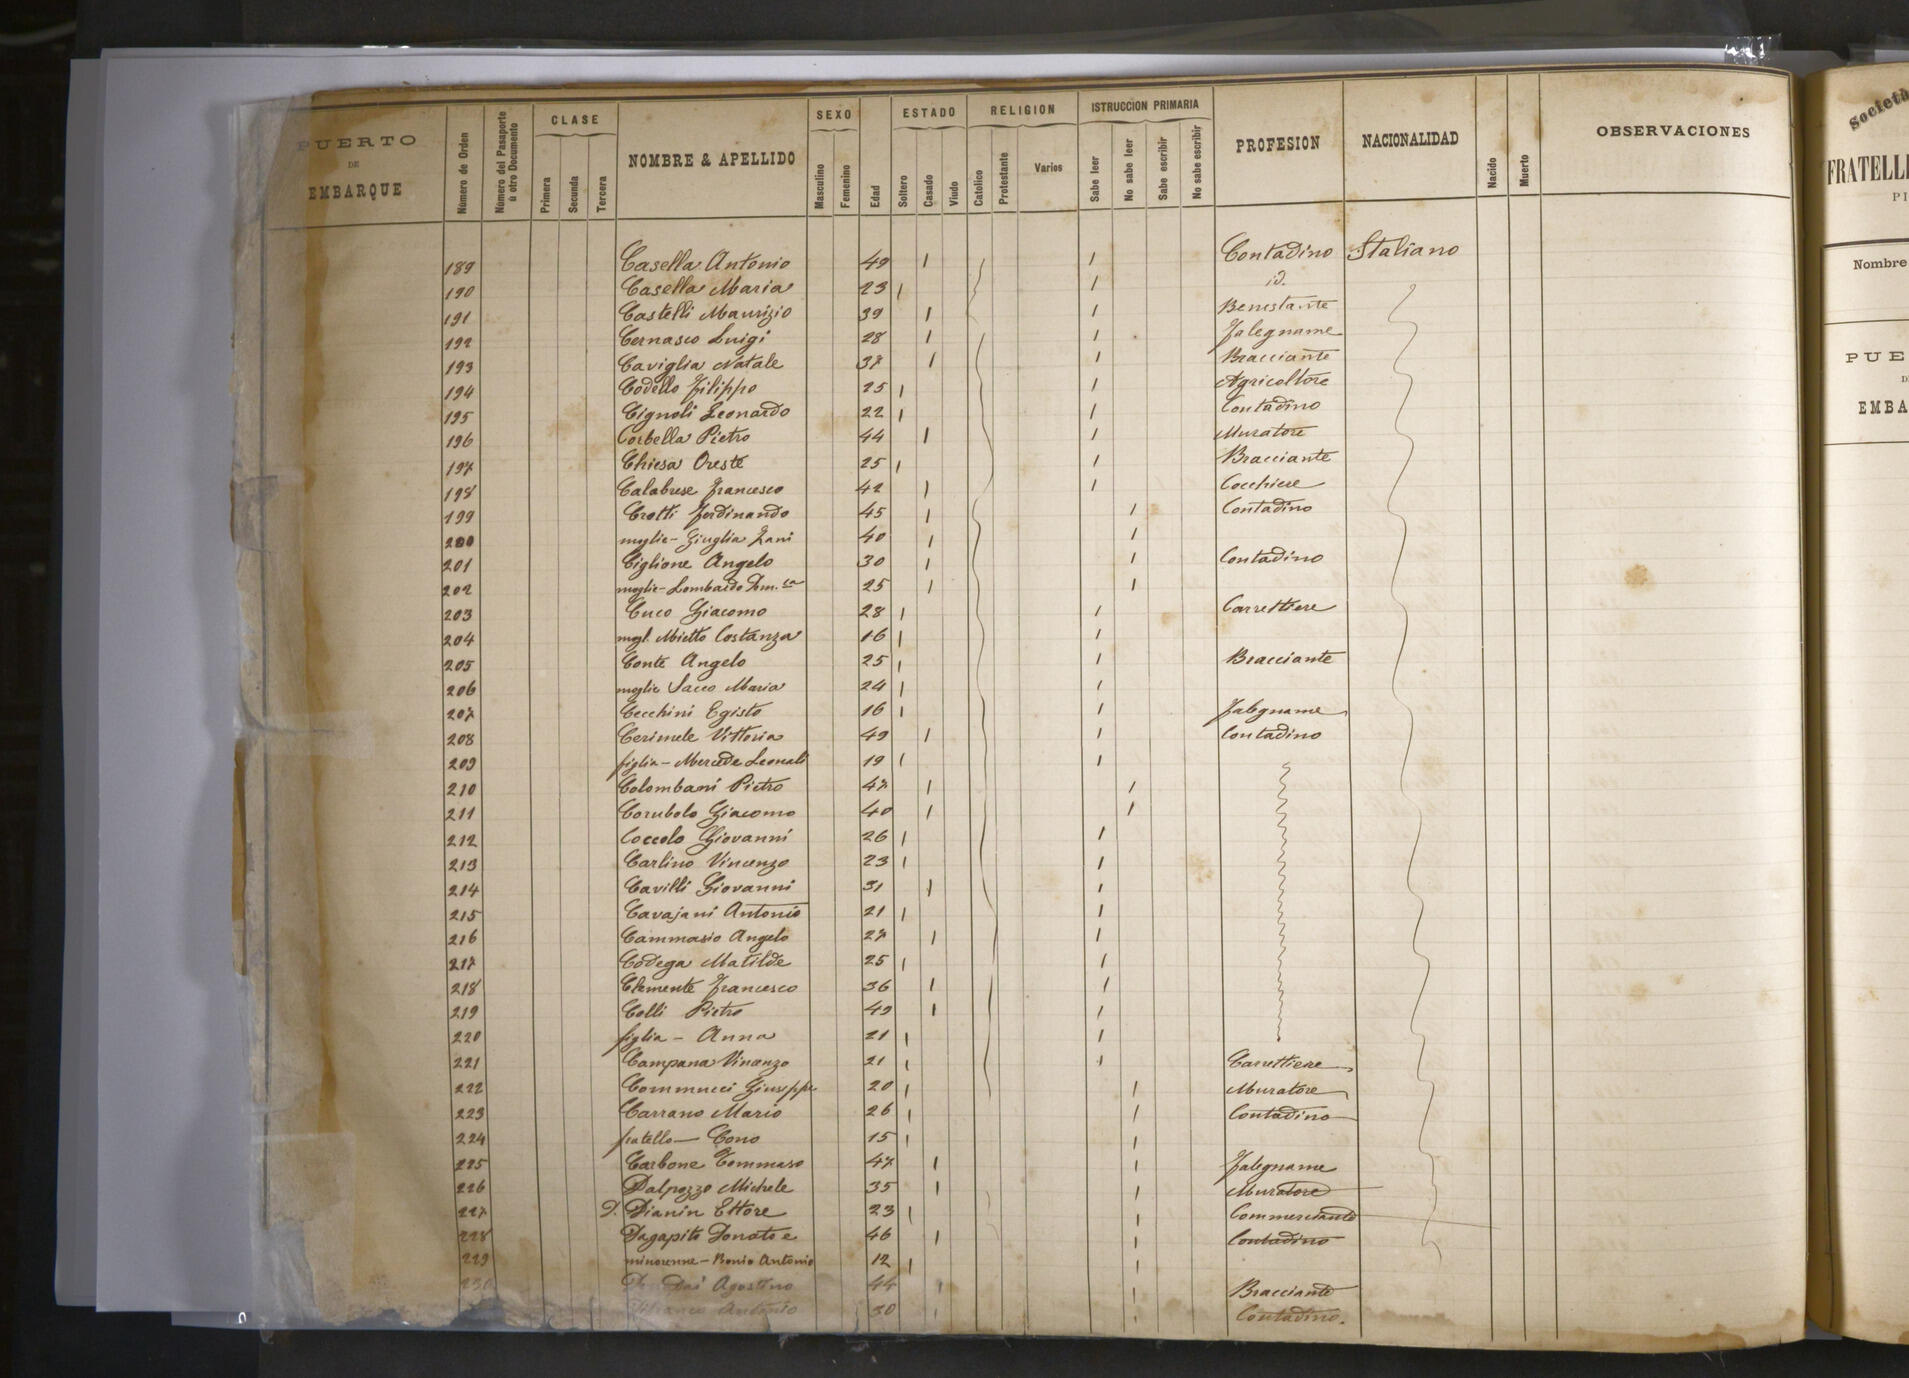 PUERTO DE EMBARQUE | Número de Orden | Número del Pasaporte ú otro Documento | CLASE: Primera, Secunda, Tercera | NOMBRE & APELLIDO | SEXO: Masculino, Femenino | Edad | ESTADO: Soltero, Casado, Viudo | RELIGION: Catolico, Protestante, Varios | ISTRUCCION PRIMARIA: Sabe leer, No sabe leer, Sabe escribir, No sabe escribir | PROFESION | NACIONALIDAD | Nacido | Muerto | OBSERVACIONES
189 Casella Antonio 49 Contadino Italiano
190 Casella Maria 23 id.
191 Castelli Maurizio 39 Benestante
192 Cernasco Luigi 28 Falegname
193 Caviglia Natale 37 Bracciante
194 Codello Filippo 25 Agricoltore
195 Cignoli Leonardo 22 Contadino
196 Corbella Pietro 44 Muratore
197 Chiesa Oreste 25 Bracciante
198 Calabrese Francesco 42 Cocchiere
199 Crotti Ferdinando 45 Contadino
200 moglie - Giuglia Zani 40
201 Ciglione Angelo 30 Contadino
202 moglie - Lombardo Dom.ca 25
203 Cuco Giacomo 28 Carrettiere
204 mogl. Mietto Costanza 16
205 Conte Angelo 25 Bracciante
206 moglie Sacco Maria 24
207 Cecchini Egisto 16 Falegname
208 Cerimele Vittoria 49 Contadino
209 figlia - Mercede Leonali 19
210 Colombani Pietro 47
211 Corubolo Giacomo 40
212 Coccolo Giovanni 26
213 Carlino Vincenzo 23
214 Cavilli Giovanni 31
215 Cavajani Antonio 21
216 Cammasio Angelo 27
217 Codega Matilde 25
218 Clemente Francesco 36
219 Colli Pietro 49
220 figlia - Anna 21
221 Campana Vincenzo 21 Carrettiere
222 Commucci Giuseppe 20 Muratore
223 Carrano Mario 26 Contadino
224 fratello - Cono 15
225 Carbone Tommaso 47 Falegname
226 Dalpozzo Michele 35 Muratore
227 D. Dianin Ettore 23 Commerciante
228 Dagapito Donato e 46 Contadino
229 minorenne - Bonio Antonio 12
230 Agostino 44 Bracciante
Antonio 30 Contadino.
Società
FRATELLI
PI
Nombre
PUE
DE
EMBA